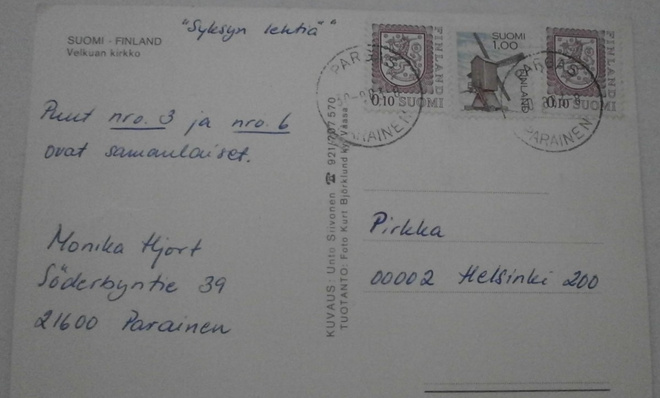 "Syksyn lehtiä"
SUOMI - FINLAND
Velkuan kirkko
Puut nro. 3 ja nro. 6
ovat samanlaiset.
Monika Hjort
Söderbyntie 39
21600 Parainen
KUVAUS: Unto Siivonen ☎ 921/207 570
TUOTANTO: Foto Kurt Björklund Ky Vaasa
0.10 SUOMI
FINLAND
SUOMI
1,00
FINLAND
0.10 SUOMI
FINLAND
PARGAS
PARAINEN
PARGAS
PARAINEN
Pirkka
00002 Helsinki 200